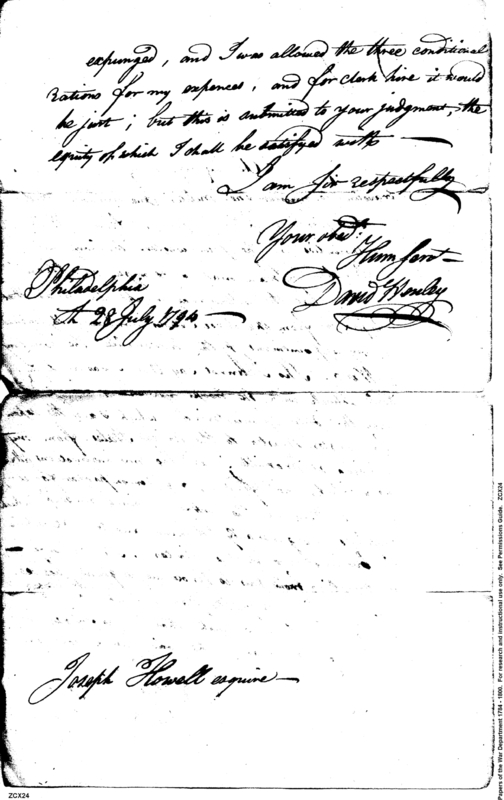 expunged, and I was allowed the three conditional
rations for my expences, and for clerk hire it would
be just; but this is submitted to your judgment, the
equity of which I shall be satisfyed with —
I am Sir respectfully
Your obed.t
Hum Servt —
David Henley
Philadelphia
th 28 July 1794 —
Joseph Howell esquire —
Papers of the War Department 1784 - 1800. For research and instructional use only. See Permissions Guide. ZCX24
ZCX24